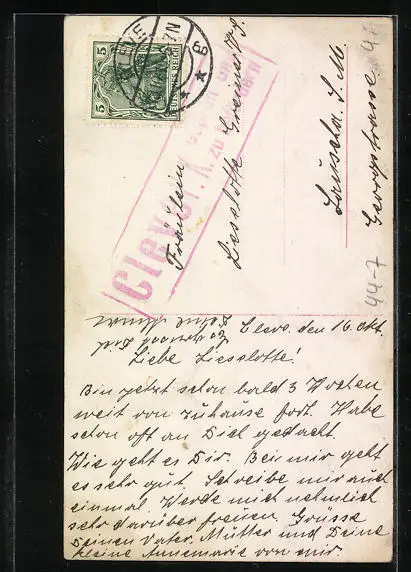 CLEVE
5 DEUTSCHES REICH 5
Cleve
F. K. zu
Fräulein
Liesslotte Greiner
Lauscha S. M.
Georgstrasse
44-7
Cleve. den 16. Okt.
Liebe Liesslotte!
Bin jetzt schon bald 3 Wochen
weit von zuhause fort. Habe
schon oft an Dich gedacht.
Wie geht es Dir. Bei mir geht
es sehr gut. Schreibe mir auch
einmal. Werde mich nehmlich
sehr darüber freuen. Grüsse
Deinen Vater, Mutter und Deine
kleine Annemarie von mir.